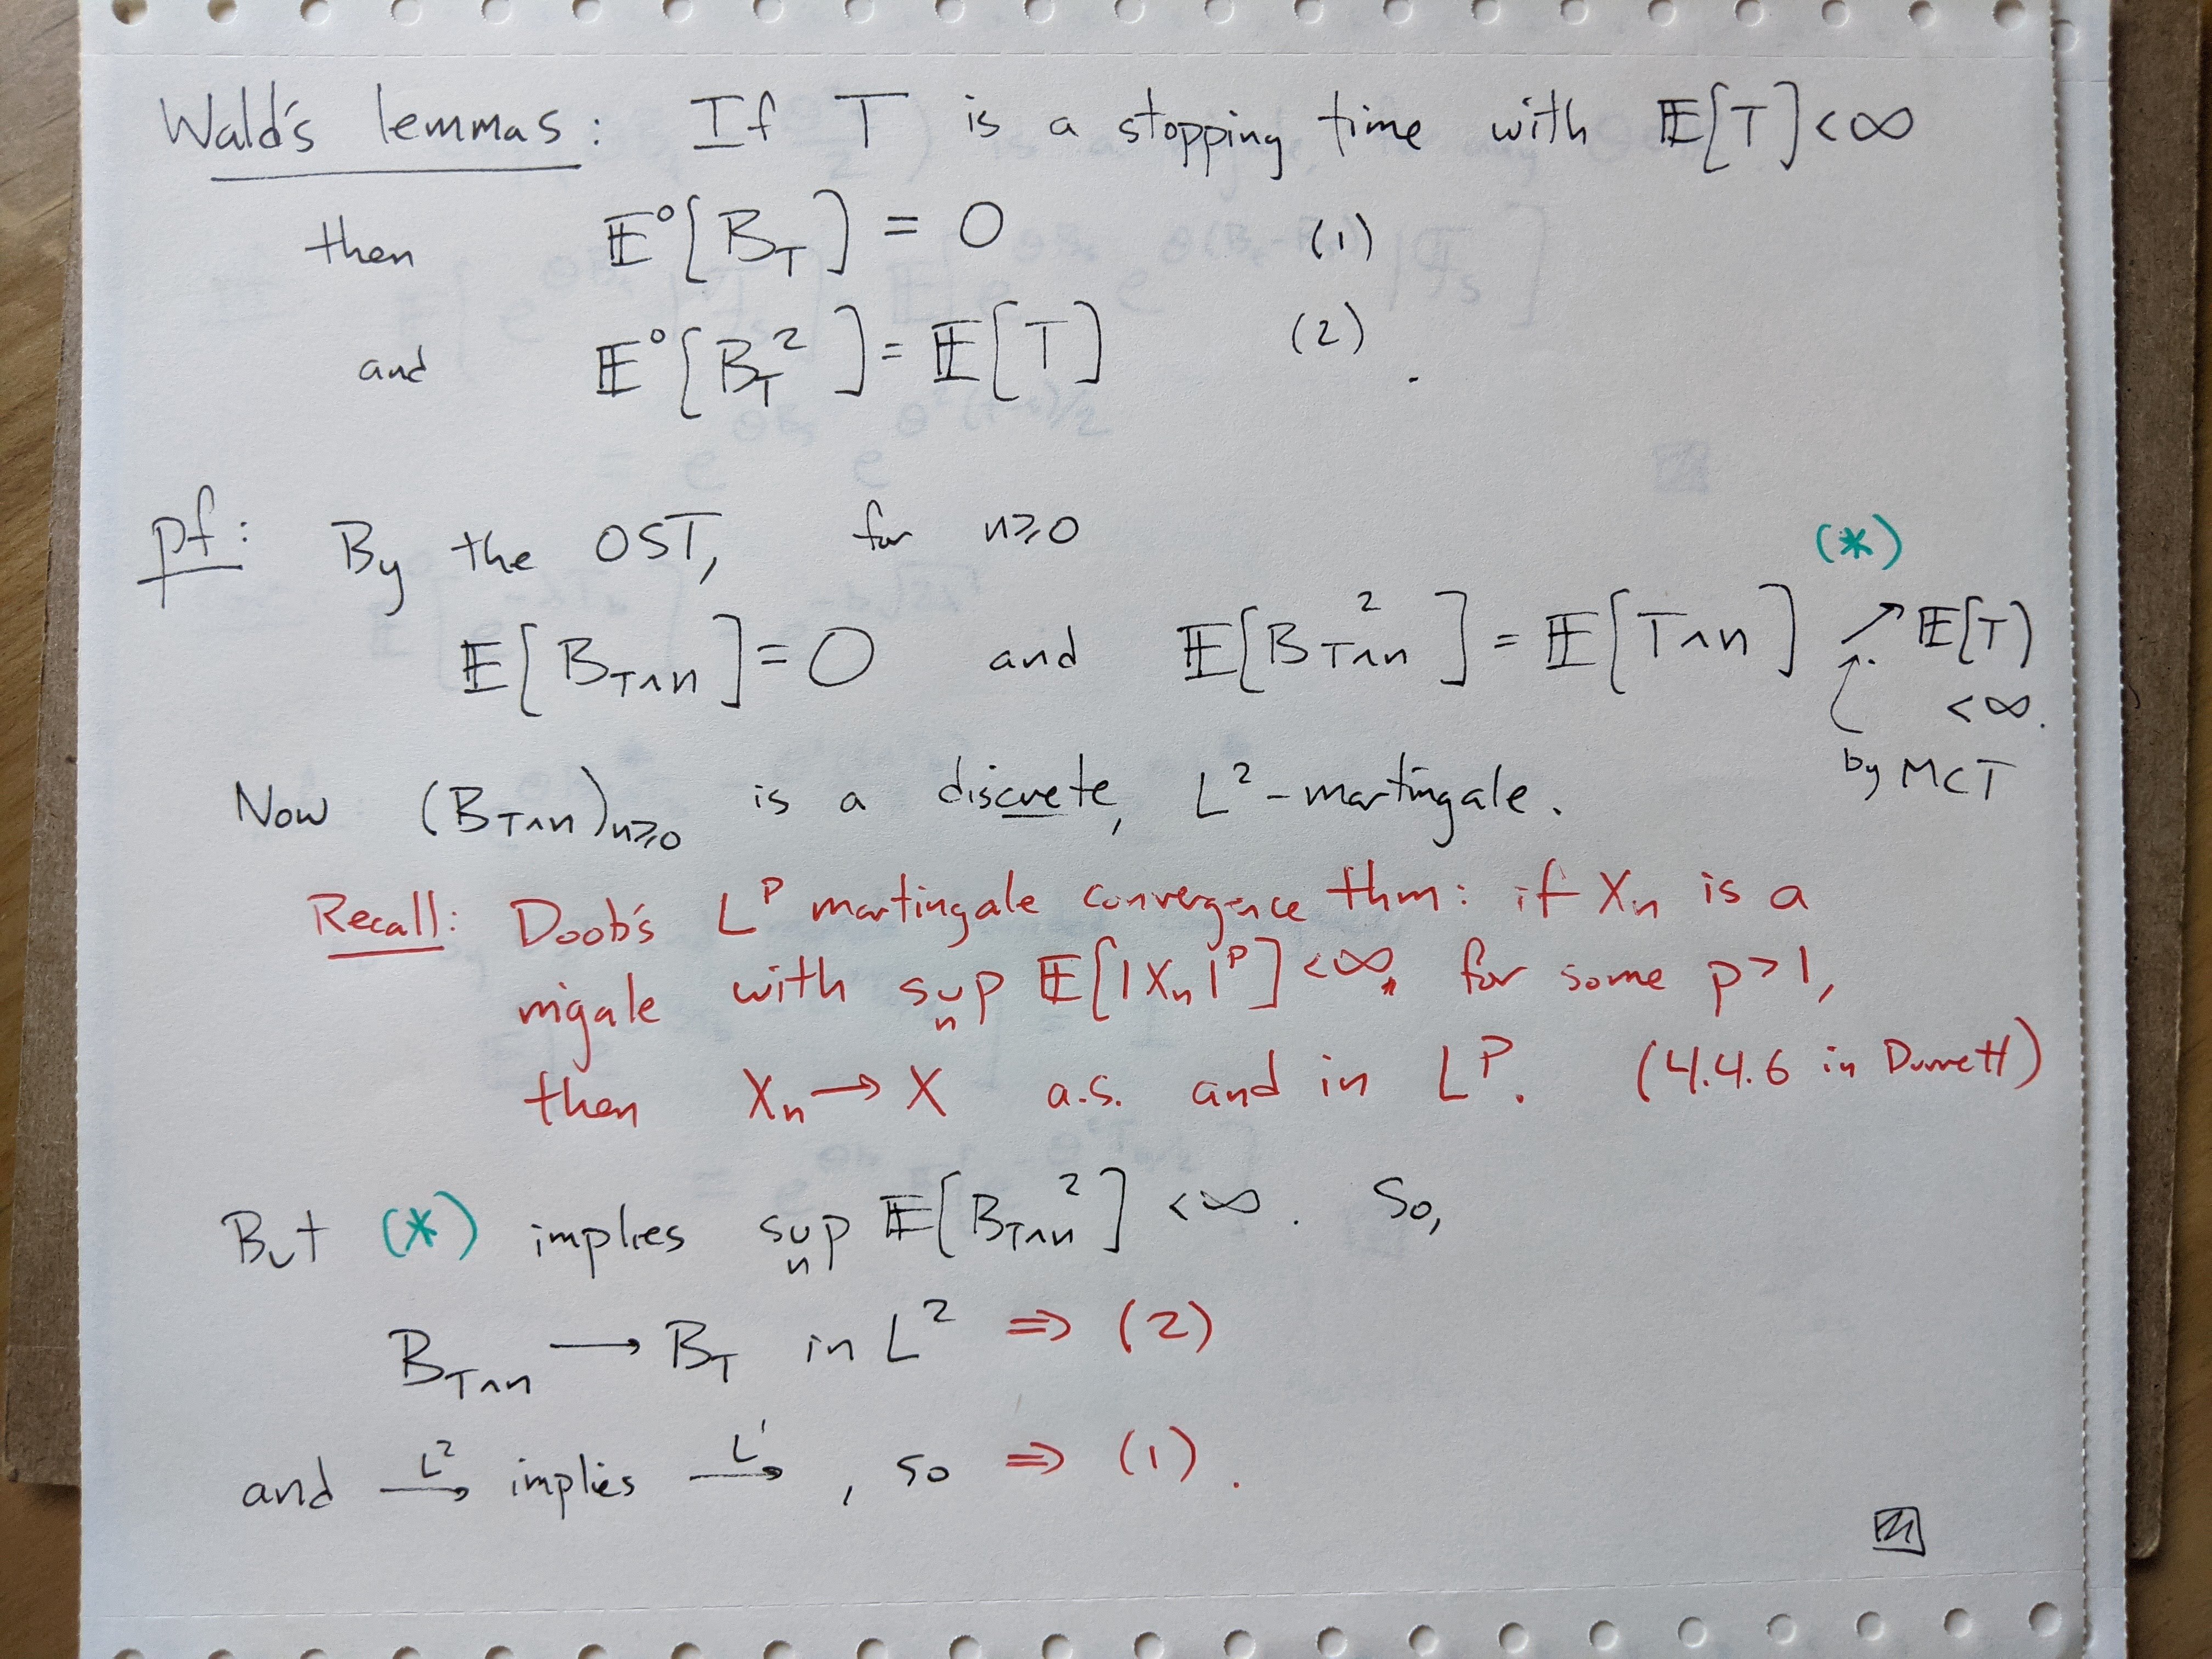 Wald's lemmas: If T is a stopping time with 𝔼[T] < ∞
then 𝔼⁰[B_T] = 0 (1)
and 𝔼⁰[B_T²] = 𝔼[T] (2).
pf: By the OST, for n≥0 (*)
𝔼[B_{T∧n}] = 0 and 𝔼[B_{T∧n}²] = 𝔼[T∧n] ↗ 𝔼[T]
< ∞.
by MCT
Now (B_{T∧n})_{n≥0} is a discrete, L²-martingale.
Recall: Doob's L^p martingale convergence thm: if X_n is a
migale with sup_n 𝔼[|X_n|^p] < ∞, for some p>1,
then X_n → X a.s. and in L^p. (4.4.6 in Durrett)
But (*) implies sup_n 𝔼[B_{T∧n}²] < ∞. So,
B_{T∧n} → B_T in L² ⇒ (2)
and →^{L²} implies →^{L¹}, so ⇒ (1).